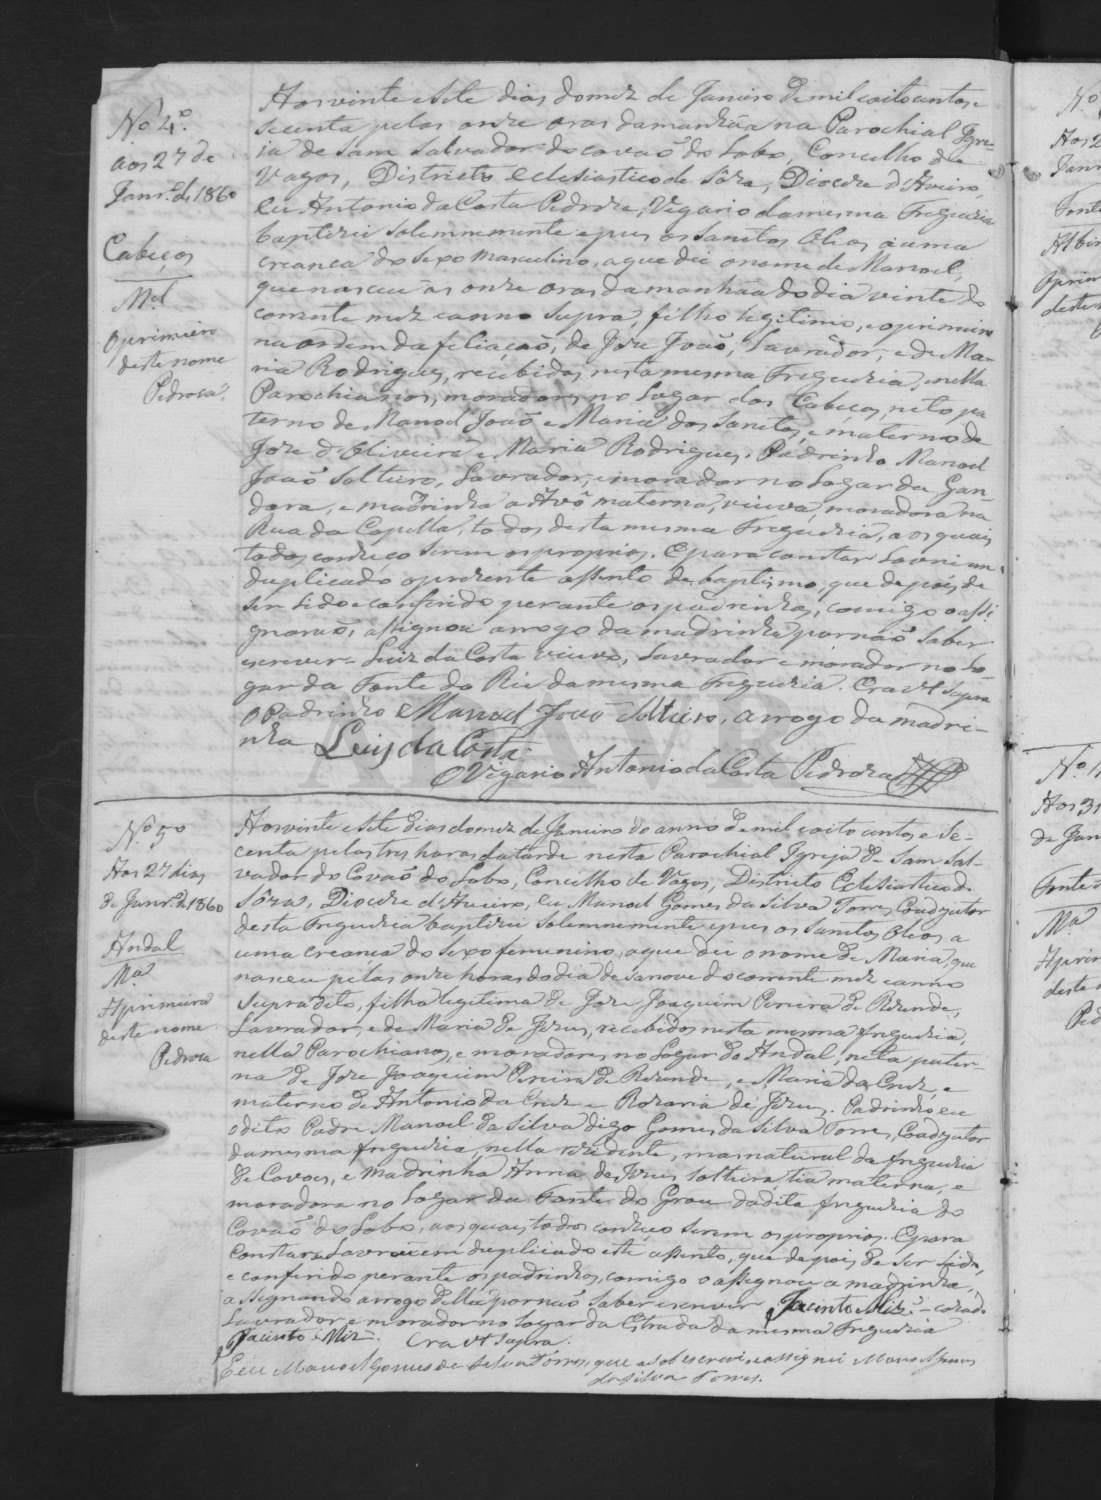 Nº 4º
Aos 27 de
Janrº de 1860
Cabeços
Mel
o primeiro
deste nome
Pedroza
Aos vinte e sete dias do mez de Janeiro de mil oito centos e
secenta pelas onze oras da manhãa na Parochial Igre-
ja de Sam Salvador do Covaõ do Lobo, Concelho de
Vagos, Districto Eclesiastico de Sôza, Diocese d'Aveiro,
Eu Antonio da Costa Pedroza, Vigario da mesma Freguezia
baptizei solemnemente e pus os Sanctos Oleos a uma
creanca do sexo masculino, a que dei o nome de Manoel,
que nasceu ás onze oras da manhãa do dia vinte do
corrente mez e anno supra, filho legitimo, e o primeiro
na ordem da filiaçaõ, de Joze Joaõ, Lavrador, e de Ma-
ria Rodrigues, recebidos nesta mesma Freguezia, nella
Parochianos, moradores no Lugar dos Cabeços, neto pa
terno de Manoel Joaõ e Maria dos Sanctos, e materno de
Joze d'Oliveira e Maria Rodrigues. Padrinho Manoel
Joaõ Solteiro, Lavrador, e morador no Lugar da Gan-
dara, e madrinha a Avó materna, viuva, moradora na
Rua da Capella, todos desta mesma Freguezia, aos quais
todos conheço serem os proprios. E para constar lavrei em
duplicado o prezente assento de baptismo, que depois de
ser lido e conferido perante os padrinhos, comigo o assi-
gnaraõ, assignou a rogo da madrinha por naõ saber
escrever Luiz da Costa viuvo, Lavrador e morador no Lu-
gar da Fonte do Rio da mesma Freguezia. Era ut supra
O Padrinho Manoel Joaõ Solteiro, a rogo da madri-
nha Luis da Costa
O Vigario Antonio da Costa Pedroza
Nº 5º
Aos 27 dias
de Janrº d 1860
Andal
Mª
A primeira
deste nome
Pedroza
Aos vinte e sete dias do mez de Janeiro do anno de mil oito centos e se-
centa pelas tres horas da tarde nesta Parochial Igreja de Sam Sal-
vador do Covaõ do Lobo, Concelho de Vagos, Districto Eclesiastico de
Sôza, Diocese d'Aveiro, Eu Manoel Gomes da Silva Torres, Coadjutor
desta Freguezia baptizei solemnemente e pus os Sanctos Oleos a
uma creanca do sexo femenino, a que dei o nome de Maria, que
nasceu pelas onze horas do dia desanove do corrente mez e anno
supra dito, filha legitima de Joze Joaquim Pereira de Rezende,
Lavrador, e de Maria de Jezus, recebidos nesta mesma freguezia,
nella Parochianos, e moradores no Lugar do Andal, neta pater-
na de Joze Joaquim Pereira de Rezende, e Maria da Cruz, e
materno de Antonio da Cruz e Rozaria de Jezus. Padrinho eu
o dito Padre Manoel da Silva digo Gomes da Silva Torres, Coadjutor
da mesma freguezia, nella rezidente, mas natural da freguezia
de Covoes, e Madrinha Anna de Jezus, Solteira, tia materna, e
moradora no Lugar da Fonte do Grou da dita freguezia do
Covaõ do Lobo, aos quais todos conheço serem os proprios. E para
constar lavrei em duplicado este assento, que depois de ser lido,
e conferido perante os padrinhos, comigo o assignou a madrinha,
assignando a rogo della por naõ saber escrever Jacinto Miz - cazado
Lavrador e morador no Lugar da Estrada da mesma Freguezia
Jacinto Miz Era ut supra.
E eu Manoel Gomes da Silva Torres, que o sobescrevi, e assignei Manoel Gomes
da Silva Torres.
Aos 2
Aos 31
de Jan
Mª